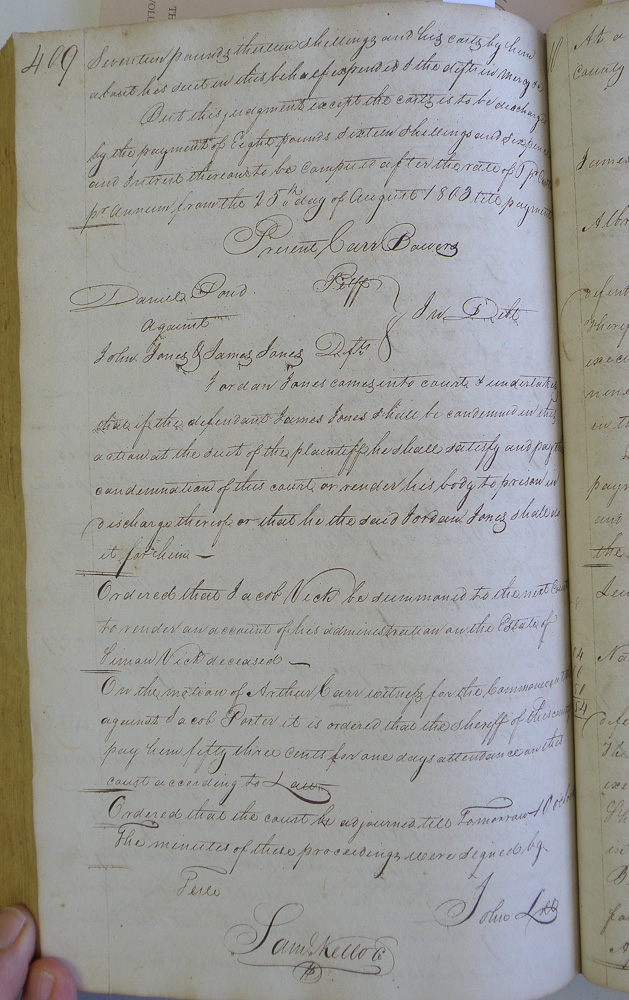 409
Seventeen pounds thirteen shillings and his costs by him
about his suit in this behalf expended & the deft in mercy &c
But this judgment except the costs is to be discharged
by the payment of Eight pounds sixteen shillings and six pence
and Interest thereon to be computed after the rate of 5 pr Cent
pr annum from the 25th day of August 1803 till payment
Present Carr Bowers
Daniel Pond Pltff
against In Debt
John Jones & James Jones Dfts
Jordan Jones comes into court & undertakes
that if the defendant James Jones shall be condemned in this
action at the suit of the plaintiff he shall satisfy and pay the
condemnation of this court or render his body to prison in
discharge thereof or that he the said Jordan Jones shall do
it for him —
Ordered that Jacob Vick be summoned to the next Court
to render an account of his administration on the Estate of
Simon Vick deceased —
On the motion of Arthur Carr witness for the Commonwealth
against Jacob Porter it is ordered that the sheriff of this county
pay him fifty three cents for one days attendance on this
court according to Law
Ordered that the court be adjourned till Tomorrow 10 oclock
The minutes of these proceedings were signed by
Teste
John
Saml Kello C
At a
County
James